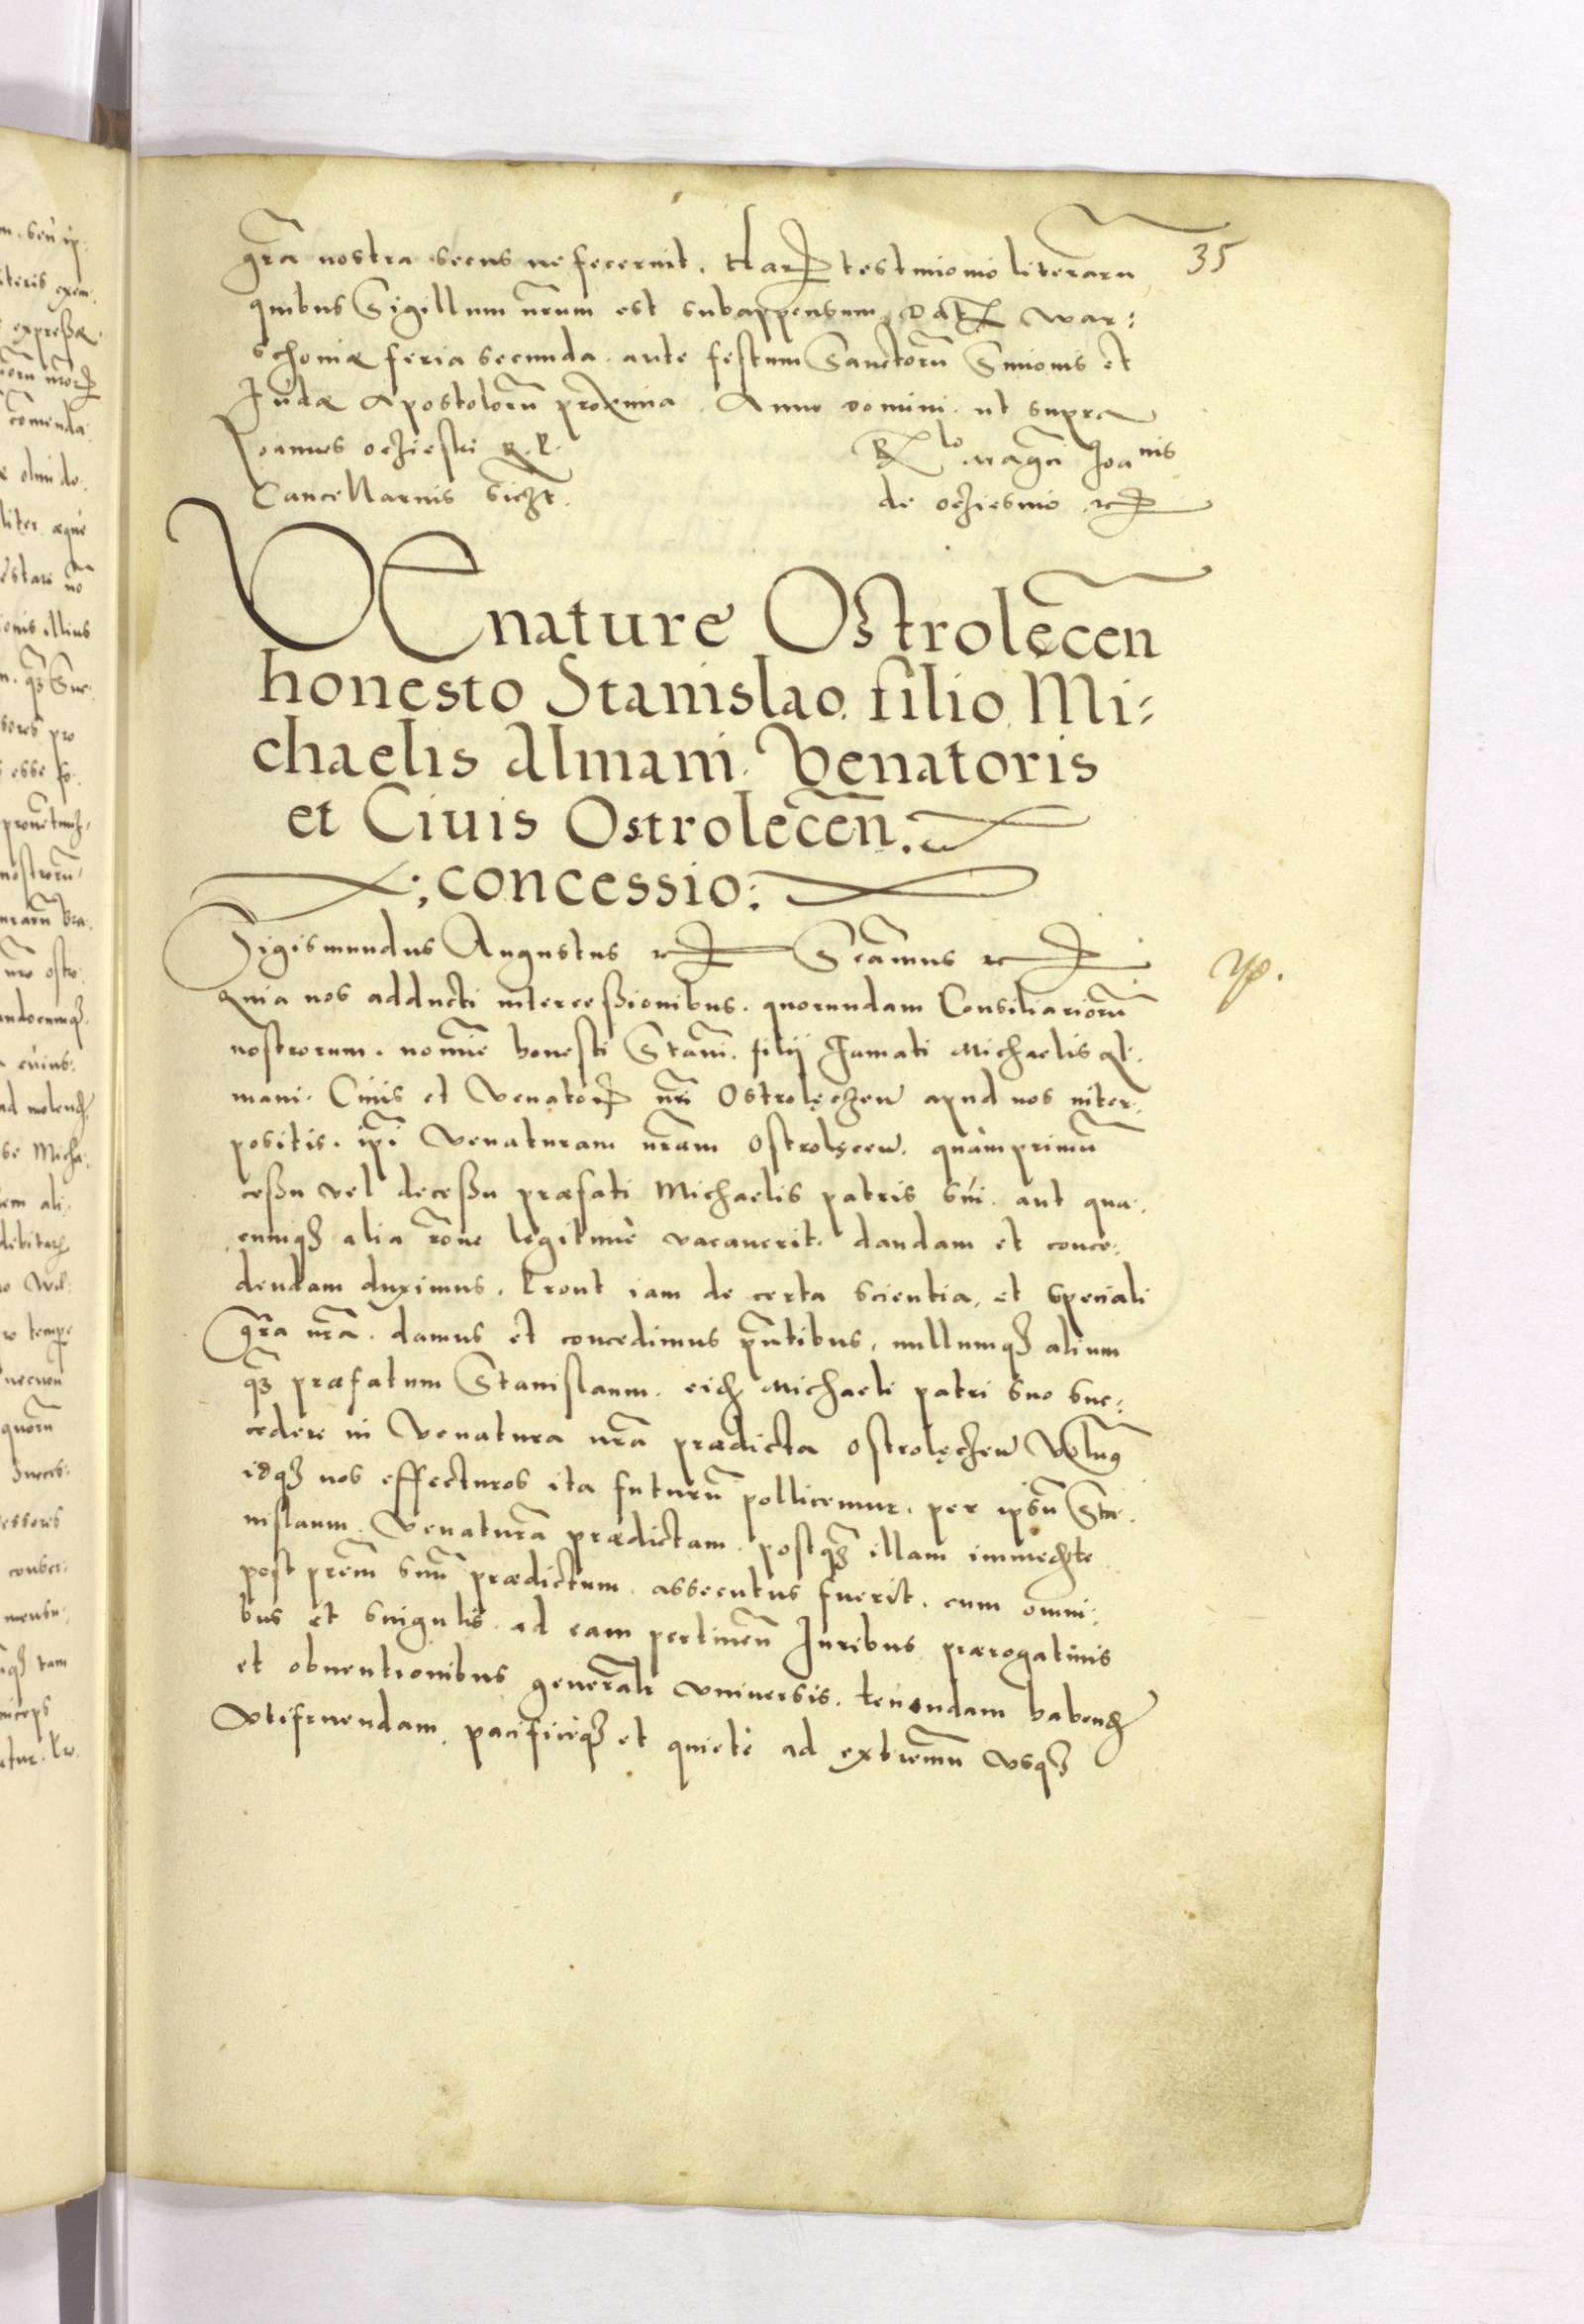 35
gr̃a nostra secus ne fecerint. Harꝝ testimonio literarũ
quibus Sigillum nrũm est subappensum, Dat War:
schoniæ feria secunda ante festum Sanctorũ Simonis et
Judæ Apostolorũ proxima. Anno domini ut supra
Joannes oczieski R. P.
Cancellarius sszt.
Rlo Magci Joanis
de oczieszino etc
VEnature Ostrolęcen̄
honesto Stanislao filio Mi:
chaelis Almani. Venatoris
et Ciuis Ostrolecen̄.
:concessio:
Sigismundus Augustus etc Sc̃amus etc
Quia nos adducti intercessionibus. quorundam Consiliariorũ
nostrorum. nomĩe honesti Stani. filij Famati Michaelis Al:
mani. Ciuis et Venatorꝭ nr̃i Ostrolęczen̄ apud nos inter:
positis. ip̃i Venaturam nr̃am Ostrolęcen̄. quàmprimũ
cessu vel decessu præfati Michaelis patris sui. aut qua:
cumqꝫ alia rõne legitimè vacauerit. dandam et conce:
dendam duximus. Prout iam de certa scientia, et speciali
Gr̃a nr̃a. damus et concedimus pñtibus, nullumqꝫ alium
qꝫ præfatum Stanislaum. eidꝫ Michaeli patri suo suc:
cedere in Venatura nr̃a prædicta Ostrolęczen̄ Volumꝰ
idqꝫ nos effecturos ita futurũ pollicemur. per ipsũ Sta:
nislaum. Venaturã prædictam. postqꝫ illam immedte
post prẽm suũ prædictum. assecutus fuerit. cum omni:
bus et singulis. ad eam pertineñ Juribus prærogatiuis
et obuentionibus generalr̃ vniuersis. tenendam habendꝫ
Vtifruendam. pacificeqꝫ et quietè ad extremũ vsqꝫ